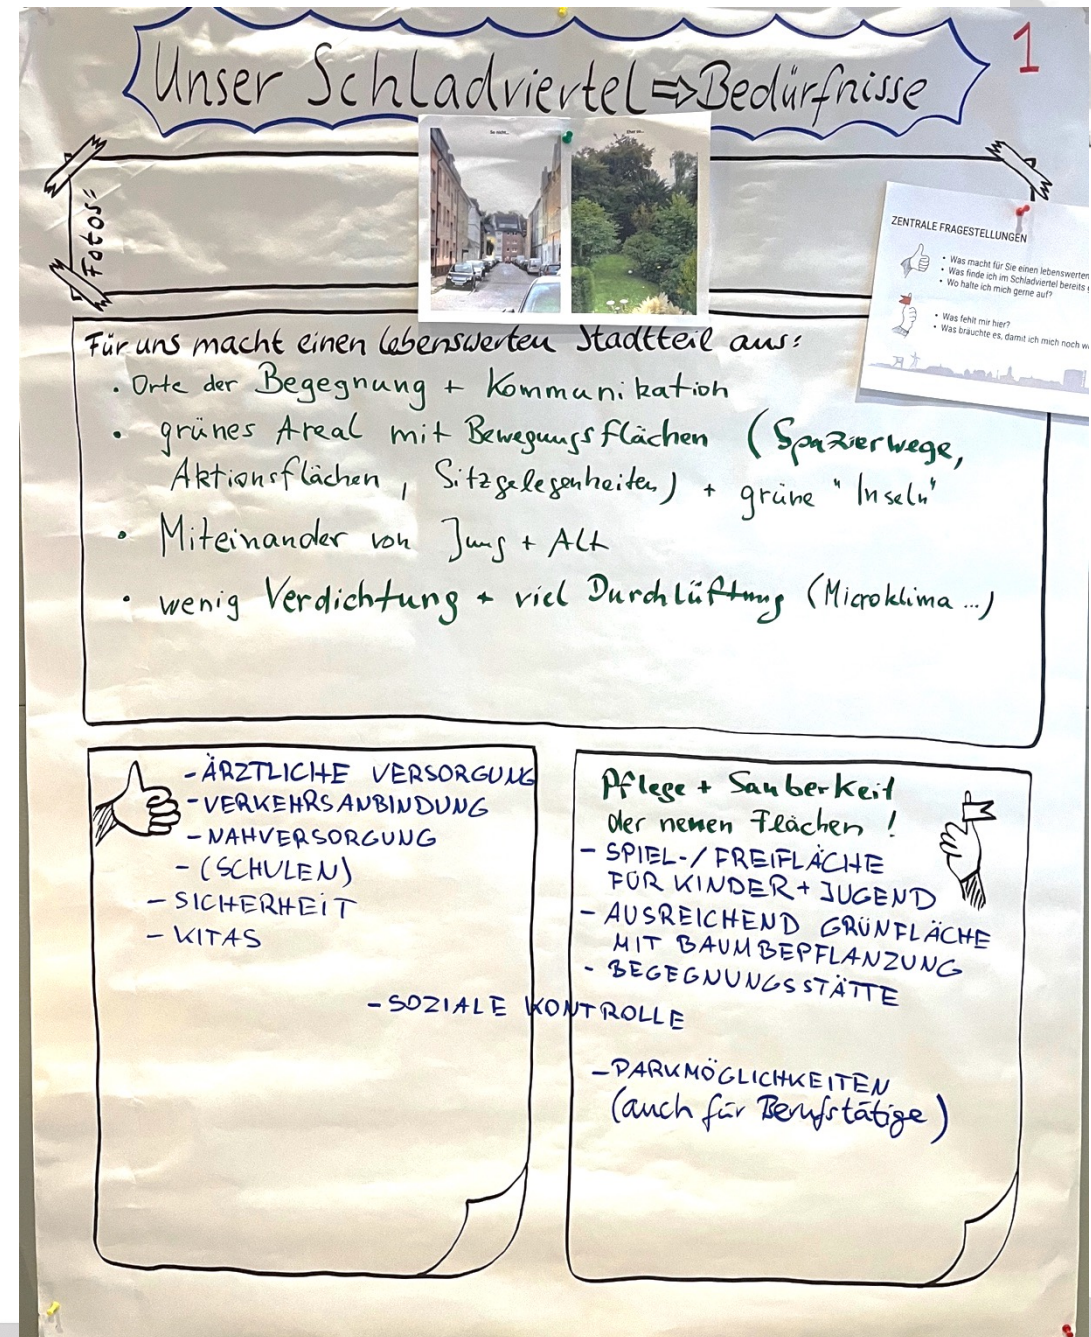 Unser Schladviertel => Bedürfnisse
1
Fotos:
So nicht...
Eher so...
ZENTRALE FRAGESTELLUNGEN
• Was macht für Sie einen lebenswerten
• Was finde ich im Schladviertel bereits
• Wo halte ich mich gerne auf?
• Was fehlt mir hier?
• Was bräuchte es, damit ich mich noch
Für uns macht einen lebenswerten Stadtteil aus:
• Orte der Begegnung + Kommunikation
• grünes Areal mit Bewegungsflächen (Spazierwege,
Aktionsflächen, Sitzgelegenheiten) + grüne "Inseln"
• Miteinander von Jung + Alt
• wenig Verdichtung + viel Durchlüftung (Microklima ...)
- ÄRZTLICHE VERSORGUNG
- VERKEHRSANBINDUNG
- NAHVERSORGUNG
- (SCHULEN)
- SICHERHEIT
- KITAS
- SOZIALE KONTROLLE
Pflege + Sauberkeit
der neuen Flächen!
- SPIEL-/FREIFLÄCHE
FÜR KINDER + JUGEND
- AUSREICHEND GRÜNFLÄCHE
MIT BAUMBEPFLANZUNG
- BEGEGNUNGSSTÄTTE
- PARKMÖGLICHKEITEN
(auch für Berufstätige)